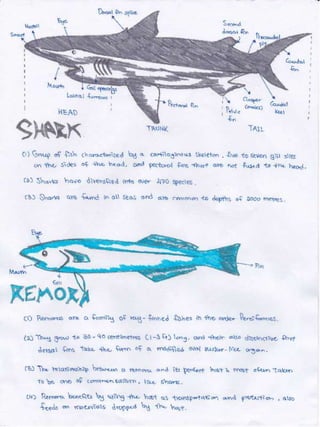 Dorsal fin spine
Nostril
Eye
Snout
Second
dorsal fin
Precaudal
pit
Caudal
fin
Mouth
Gill openings
Labial furrows
Pectoral fin
Clasper
(males)
Pelvic
fin
Caudal
Keel
HEAD
TRUNK
TAIL
SHARK
(1) Group of fish characterized by a cartilaginous skeleton, five to seven gill slits
on the sides of the head, and pectoral fins that are not fused to the head.
(2) Sharks have diversified into over 470 species.
(3) Sharks are found in all seas and are common to depths of 2000 metres.
Eye
Mouth
Gill
Fin
REMORA
(1) Remoras are a family of ray-finned fishes in the order Perciformes.
(2) They grow to 30-90 centimetres (1-3 ft) long, and their also distinctive first
dorsal fins take the form of a modified oval sucker-like organ.
(3) The relationship between a remora and its host is most often taken
to be one of commensalism, like shark.
(4) Remora benefits by using the host as transportation and protection, also
feeds on materials dropped by the host.